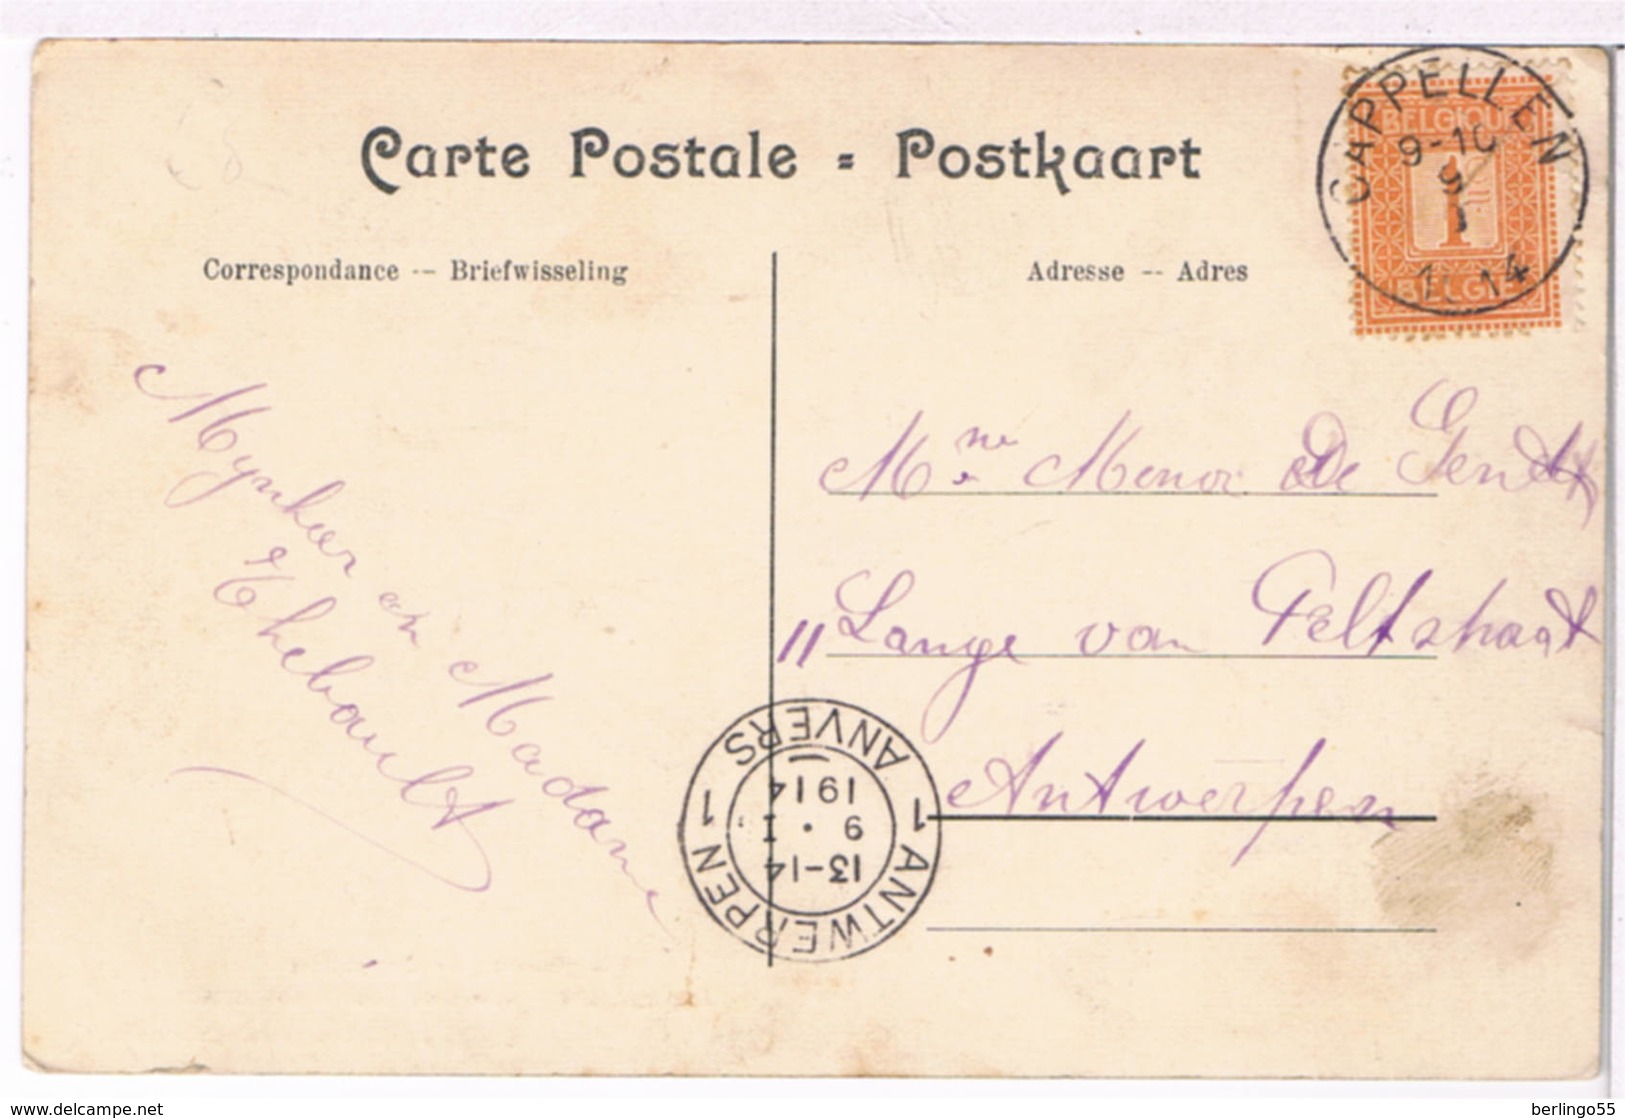 Carte Postale = Postkaart
Correspondance -- Briefwisseling
Adresse -- Adres
CAPPELLEN
9-10
9
I
14
BELGIQUE
1
BELGIË
Mynheer en Madame
Thebault
Mne Menor De Gendt
11 Lange van
Antwerpen
1 ANTWERPEN 1 ANVERS
13-14
9 · I
1914
www.delcampe.net
berlingo55